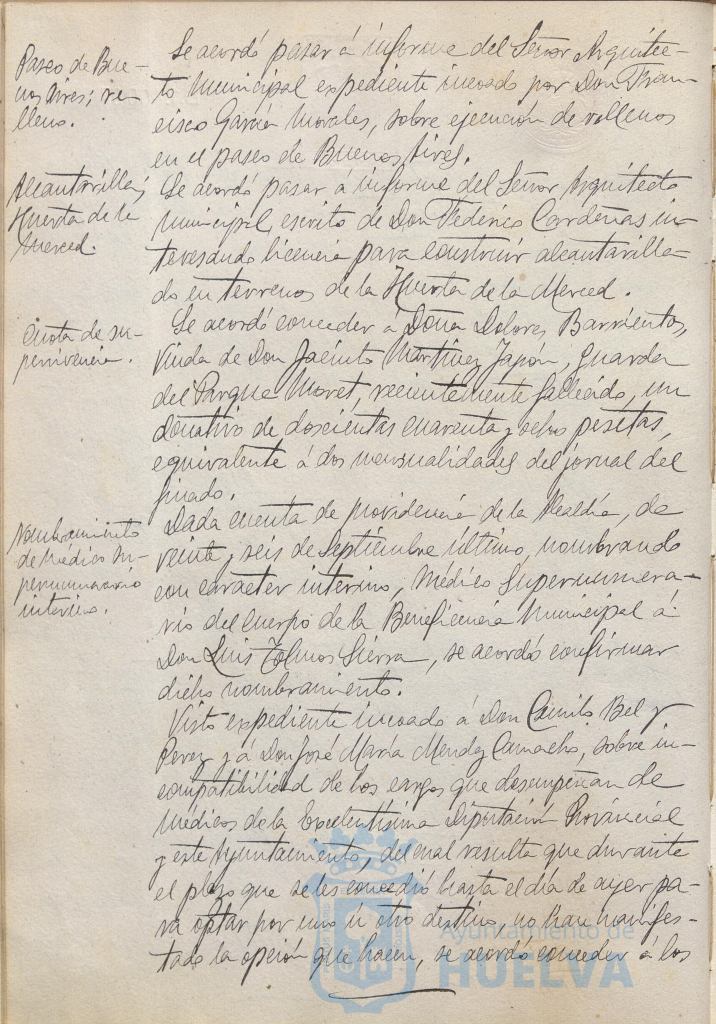 Paseo de Bue-
nos Aires; re-
lleno.
Se acordó pasar á informe del Señor Arquitec-
to Municipal expediente incoado por Don Fran-
cisco García Morales, sobre ejecución de rellenos
en el paseo de Buenos Aires.
Alcantarilla;
Huerta de la
Merced.
Se acordó pasar á informe del Señor Arquitecto
Municipal, escrito de Don Federico Cardeñas in-
teresando licencia para construir alcantarilla-
do en terrenos de la Huerta de la Merced.
Cuota de su-
pervivencia.
Se acordó conceder á Doña Dolores Barrientos,
viuda de Don Jacinto Martínez Japón, guarda
del Parque Moret, recientemente fallecido, un
donativo de doscientas cuarenta y ocho pesetas,
equivalente á dos mensualidades del jornal del
finado.
Nombramiento
de Médico su-
pernumerario
interino.
Dada cuenta de providencia de la Alcaldía, de
veinte y seis de septiembre último, nombrando
con caracter interino, Médico Supernumera-
rio del Cuerpo de la Beneficencia Municipal á
Don Luis Tolmos Sierra, se acordó confirmar
dicho nombramiento.
Visto expediente incoado á Don Camilo Bel y
Perez y á Don José María Mendez Camacho, sobre in-
compatibilidad de los cargos que desempeñan de
Médicos de la Excelentísima Diputación Provincial
y este Ayuntamiento, del cual resulta que durante
el plazo que se les concedió hasta el día de ayer pa-
ra optar por uno ú otro destino, no han manifes-
tado la opción que hacen, se acordó conceder á los
Ayuntamiento de
HUELVA